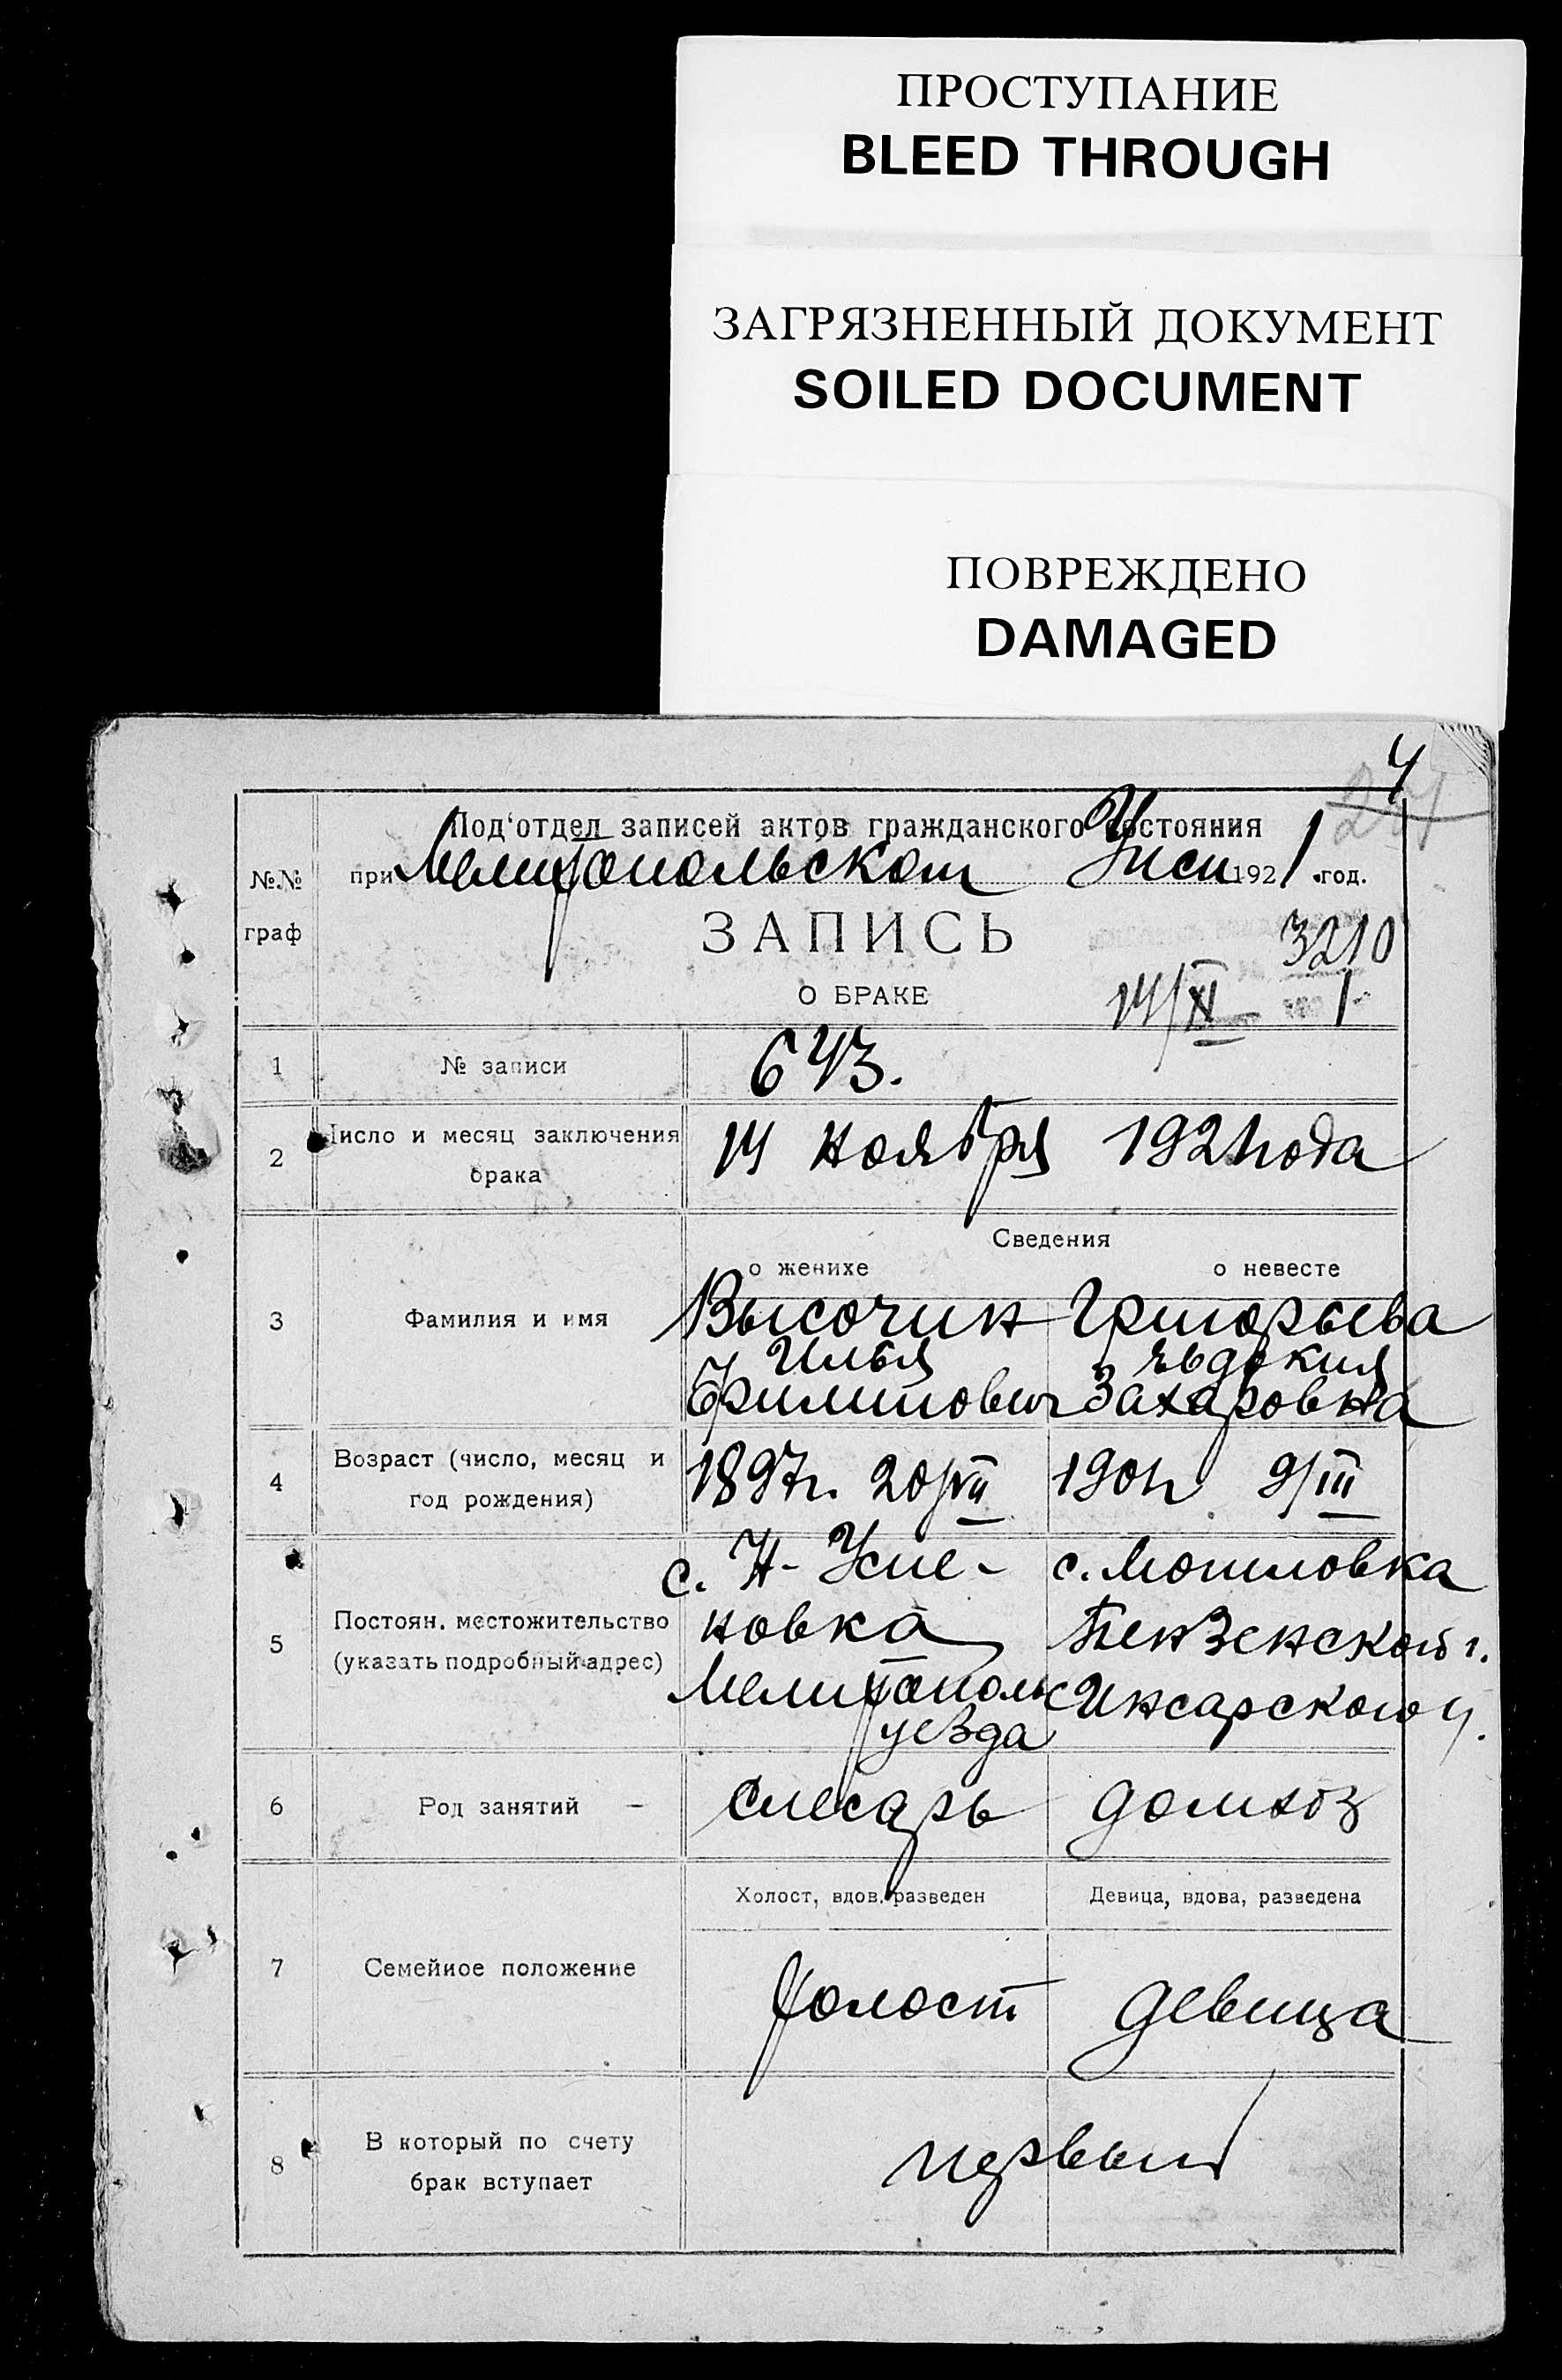 ПРОСТУПАНИЕ
BLEED THROUGH
ЗАГРЯЗНЕННЫЙ ДОКУМЕНТ
SOILED DOCUMENT
ПОВРЕЖДЕНО
DAMAGED
4
Под'отдел записей актов гражданского состояния
№№ граф
при Мелитопольском 1921 год.
ЗАПИСЬ
3210
О БРАКЕ
14/XI 1
1 № записи 643.
2 Число и месяц заключения брака 14 ноября 1921 года
Сведения
о женихе о невесте
3 Фамилия и имя Высочин Григорьева
Илья Евдокия
Филипович Захаровна
4 Возраст (число, месяц и год рождения) 1897г. 20/VII 1901г 9/III
5 Постоян. местожительство (указать подробный адрес)
с. Н- Успе- с.
новка Пензенской г.
Мелитопольс Инсарского у.
уезда
6 Род занятий – слесарь домхоз
Холост, вдов. разведен Девица, вдова, разведена
7 Семейное положение холост девица
8 В который по счету брак вступает первый